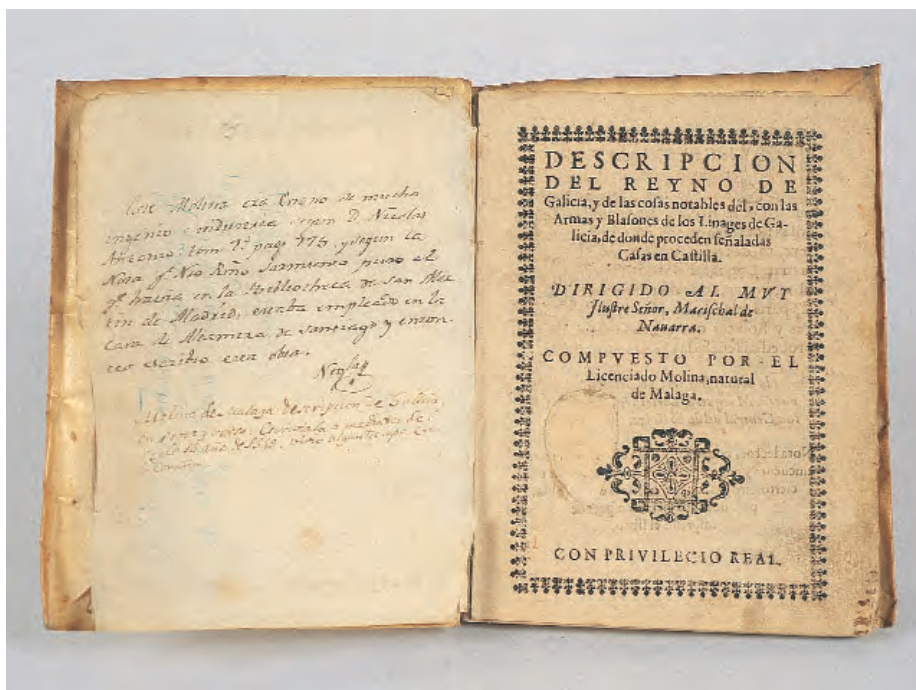 Este Molina era Ameno de mucha
ingenio e industria segun D. Nicolas
Antonio tom 1º pag 175. y segun la
Nota qᵉ Nro Rmo Sarmiento puso al
qᵉ havia en la Bibliotheca de San Mar
tin de Madrid, estaba empleado en la
Casa de de Santiago y enton
ces escribio esta obra.
Molina de Malaga descripcion de Galicia
año de
DESCRIPCION
DEL REYNO DE
Galicia, y de las cosas notables del, con las
Armas y Blasones de los Linages de Ga-
licia, de donde proceden señaladas
Casas en Castilla.
DIRIGIDO AL MVY
Ilustre Señor, Marischal de
Nauarra.
COMPVESTO POR EL
Licenciado Molina, natural
de Malaga.
CON PRIVILEGIO REAL.